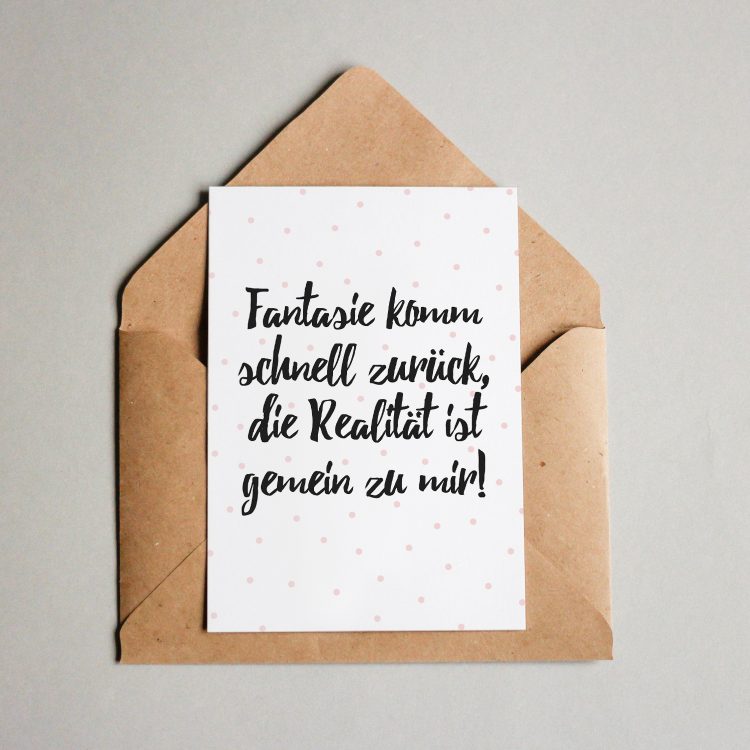 Fantasie komm
schnell zurück,
die Realität ist
gemein zu mir!